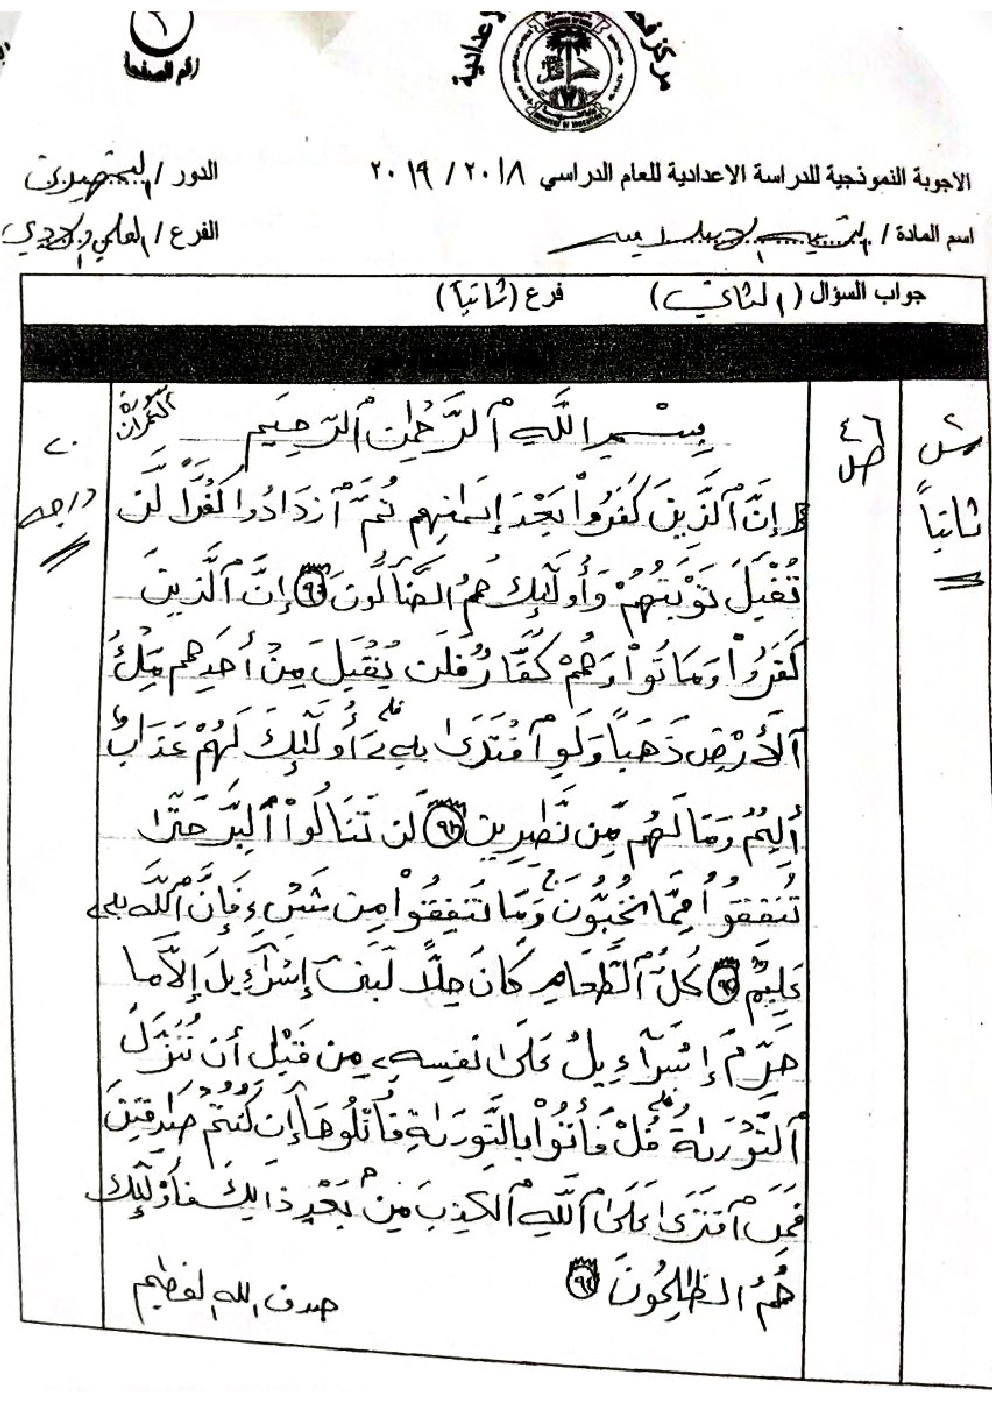 مركز فحص
الاعدادية
رقم الصفحة
الاجوبة النموذجية للدراسة الاعدادية للعام الدراسي ٢٠١٨ / ٢٠١٩
الدور / التمهيدي
اسم المادة / التربية الاسلامية
الفرع / العلمي والادبي
جواب السؤال ( الثاني ) فرع ( ثانياً )
ثانياً
ص ٤٦
٢٠ درجة
بِسْمِ اللَّهِ ٱلرَّحْمَٰنِ ٱلرَّحِيمِ
إِنَّ ٱلَّذِينَ كَفَرُوا۟ بَعْدَ إِيمَٰنِهِمْ ثُمَّ ٱزْدَادُوا كُفْرًا لَّن
تُقْبَلَ تَوْبَتُهُمْ وَأُو۟لَٰٓئِكَ هُمُ ٱلضَّآلُّونَ ٩٠ إِنَّ ٱلَّذِينَ
كَفَرُوا۟ وَمَاتُوا۟ وَهُمْ كُفَّارٌ فَلَن يُقْبَلَ مِنْ أَحَدِهِم مِّلْءُ
ٱلْأَرْضِ ذَهَبًا وَلَوِ ٱفْتَدَىٰ بِهِۦٓ أُو۟لَٰٓئِكَ لَهُمْ عَذَابٌ
أَلِيمٌ وَمَا لَهُم مِّن نَّٰصِرِينَ ٩١ لَن تَنَالُوا۟ ٱلْبِرَّ حَتَّىٰ
تُنفِقُوا۟ مِمَّا تُحِبُّونَ ۚ وَمَا تُنفِقُوا۟ مِن شَىْءٍ فَإِنَّ ٱللَّهَ بِهِۦ
عَلِيمٌ ٩٢ كُلُّ ٱلطَّعَامِ كَانَ حِلًّا لِّبَنِىٓ إِسْرَٰٓءِيلَ إِلَّا مَا
حَرَّمَ إِسْرَٰٓءِيلُ عَلَىٰ نَفْسِهِۦ مِن قَبْلِ أَن تُنَزَّلَ
ٱلتَّوْرَىٰةُ ۗ قُلْ فَأْتُوا۟ بِٱلتَّوْرَىٰةِ فَٱتْلُوهَآ إِن كُنتُمْ صَٰدِقِينَ
فَمَنِ ٱفْتَرَىٰ عَلَى ٱللَّهِ ٱلْكَذِبَ مِنۢ بَعْدِ ذَٰلِكَ فَأُو۟لَٰٓئِكَ
هُمُ ٱلظَّٰلِمُونَ ٩٤
صدق الله العظيم